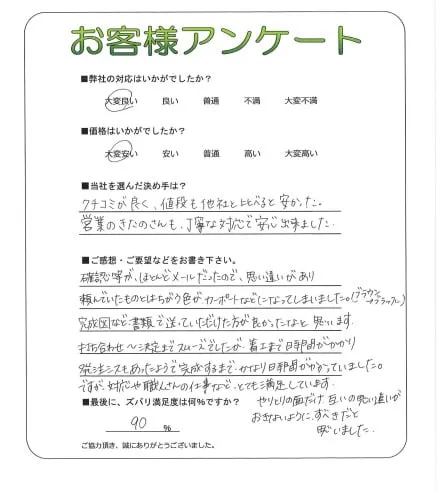 お客様アンケート
■弊社の対応はいかがでしたか？
大変良い　良い　普通　不満　大変不満
■価格はいかがでしたか？
大変安い　安い　普通　高い　大変高い
■当社を選んだ決め手は？
クチコミが良く、値段も他社と比べると安かった。
営業のきたのさんも、丁寧な対応で安心出来ました。
■ご感想・ご要望などをお書き下さい。
確認等が、ほとんどメールだったので、思い違いがあり
頼んでいたものとはちがう色が、カーポートなどになってしまいました。(ブラウン
ブラック)
完成図など、書類で送っていただけた方が良かったなと思います。
打ち合わせ〜決定までスムーズでしたが、着工まで日時間がかかり
発注ミスもあったようで完成するまで、かなり日時間がかかっていました。
ですが、対応や職人さんの仕事など、とても満足しています。
やりとりの面だけ、互いの思い違いが
おきないように、すべきだと
思いました。
■最後に、ズバリ満足度は何％ですか？
90 %
ご協力頂き、誠にありがとうございました。